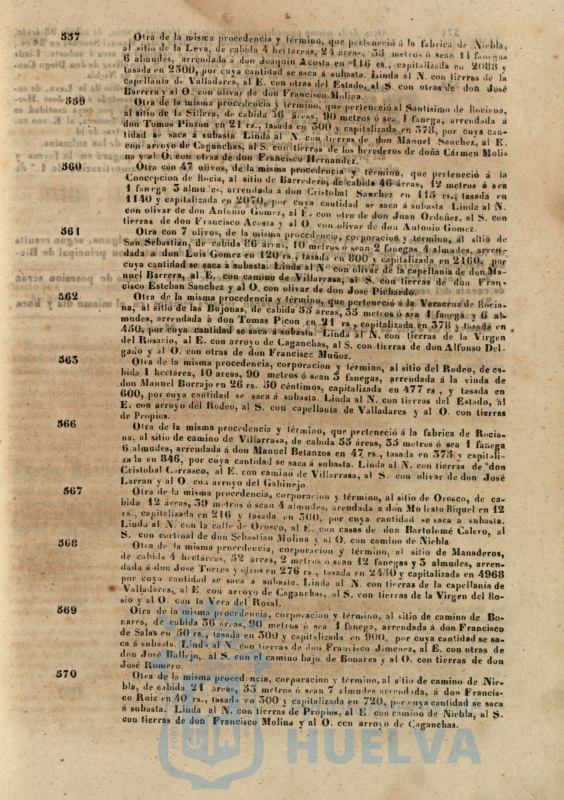 557 Otra de la misma procedencia y término, que perteneció á la fabrica de Niebla,
al sitio de la Leva, de cabida 4 hectárras, 24 áreas, 53 metros ó sean 11 fanegas
6 almudes, arrendada á don Joaquin Acosta en 116 rs., capitalizada en 2088 y
tasada en 2300, por cuya cantidad se saca á subasta. Linda al N. con tierras de la
capellania de Valladares, al E. con otras del Estado, al S. con otras de don José
Barrera y al O. con olivar de don Francisco Molina.
559 Otra de la misma procedencia y término, que perteneció al Santísimo de Rociana,
al sitio de la Sillera, de cabida 36 áreas, 90 metros ó sea 1 fanega, arrendada á
don Tomas Pinzon en 21 rs., tasada en 300 y capitalizada en 378, por cuya can-
tidad se saca á subasta Linda al N. con tierras de don Manuel Sanchez, al E.
con arroyo de Caganchas, al S. con tierras de los herederos de doña Cármen Moli-
na y al O. con otras de don Francisco Hernandez.
560 Otra con 47 olivos, de la misma procedencia y término, que perteneció á la
Concepcion de Rocia, al sitio de Barredero, de cabida 46 áreas, 12 metros ó sea
1 fanega 3 almudes, arrendada á don Cristobal Sanchez en 115 rs., tasada en
1140 y capitalizada en 2070, por cuya cantidad se saca á subasta Linda al N.
con olivar de don Antonio Gomez, al E. con otro de don Juan Ordoñez, al S. con
tierras de don Francisco Acosta y al O. con olivar de don Antonio Gomez.
561 Otra con 7 olivos, de la misma procedencia, corporacion y término, al sitio de
San Sebastian, de cabida 86 áreas, 10 metros ó sean 2 fanegas 4 almudes, arren-
dada á don Luis Gomez en 120 rs., tasada en 800 y capitalizada en 2160, por
cuya cantidad se saca á subasta. Linda al N. con olivar de la capellania de don Ma-
nuel Barrera, al E. con camino de Villarrasa, al S. con tierras de don Fran-
cisco Esteban Sanchez y al O. con olivar de don José Pichardo.
562 Otra de la misma procedencia y término, que perteneció á la Veracruz de Rocia-
na, al sitio de las Bujonas, de cabida 55 áreas, 35 metros ó sea 1 fanega y 6 al-
mudes, arrendada á don Tomas Picon en 21 rs., capitalizada en 378 y tasada en
450, por cuya cantidad se saca á subasta. Linda al N. con tierras de la Virgen
del Rosario, al E. con arroyo de Caganchas, al S. con tierras de don Alfonso Del-
gado y al O. con otras de don Francisco Muñoz.
563 Otra de la misma procedencia, corporacion y término, al sitio del Rodeo, de ca-
bida 1 hectárea, 10 áreas, 90 metros ó sean 3 fanegas, arrendada á la viuda de
don Manuel Borrajo en 26 rs. 50 céntimos, capitalizada en 477 rs., y tasada en
600, por cuya cantidad se saca á subasta. Linda al N. con tierras del Estado, al
E. con arroyo del Rodeo, al S. con capellania de Valladares y al O. con tierras
de Propios.
566 Otra de la misma procedencia y término, que perteneció á la fabrica de Rocia-
na, al sitio de camino de Villarrasa, de cabida 55 áreas, 35 metros ó sea 1 fanega
6 almudes, arrendada á don Manuel Betanzos en 47 rs., tasada en 375 y capitali-
zada en 846, por cuya cantidad se saca á subasta. Linda al N. con tierras de don
Cristobal Carrasco, al E. con camino de Villarrasa, al S. con olivar de don José
Larran y al O. con arroyo del Gabinejo.
567 Otra de la misma procedencia, corporacion y término, al sitio de Orosco, de ca-
bida 12 áreas, 39 metros ó sean 4 almudes, arrendada a don Modesto Riquel en 12
rs., capitalizada en 216 y tasada en 300, por cuya cantidad se saca á subasta.
Linda al N. con la calle de Orosco, al E. con casas de don Bartolomé Calero, al
S. con cortinal de don Sebastian Molina y al O. con camino de Niebla
568 Otra de la misma procedencia, corporacion y término, al sitio de Manaderos,
de cabida 4 hectáreas, 52 áreas, 2 metros ó sean 12 fanegas y 3 almudes, arren-
dada á don José Torres y otros en 276 rs., tasada en 2450 y capitalizada en 4968
por cuya cantidad se saca á subasta. Linda al N. con tierras de la capellania de
Valladares, al E. con arroyo de Caganchas, al S. con tierras de la Virgen del Ro-
sio y al O. con la Vera del Rosal.
569 Otra de la misma procedencia, corporacion y término, al sitio de camino de Bo-
nares, de cabida 36 áreas, 90 metros ó sea 1 fanega, arrendada á don Francisco
de Salas en 50 rs., tasada en 300 y capitalizada en 900, por cuya cantidad se sa-
ca á subasta. Linda al N. con tierras de don Francisco Jimenez, al E. con otras de
don José Ballejo, al S. con el camino bajo de Bonares y al O. con tierras de don
José Romero.
570 Otra de la misma procedencia, corporacion y término, al sitio de camino de Nie-
bla, de cabida 21 áreas, 53 metros ó sean 7 almudes arrendada, á don Francis-
co Ruiz en 40 rs., tasada en 300 y capitalizada en 720, por cuya cantidad se saca
á subasta. Linda al N. con tierras de Propios, al E con camino de Niebla, al S.
con tierras de don Francisco Molina y al O. con arroyo de Caganchas.
HUELVA